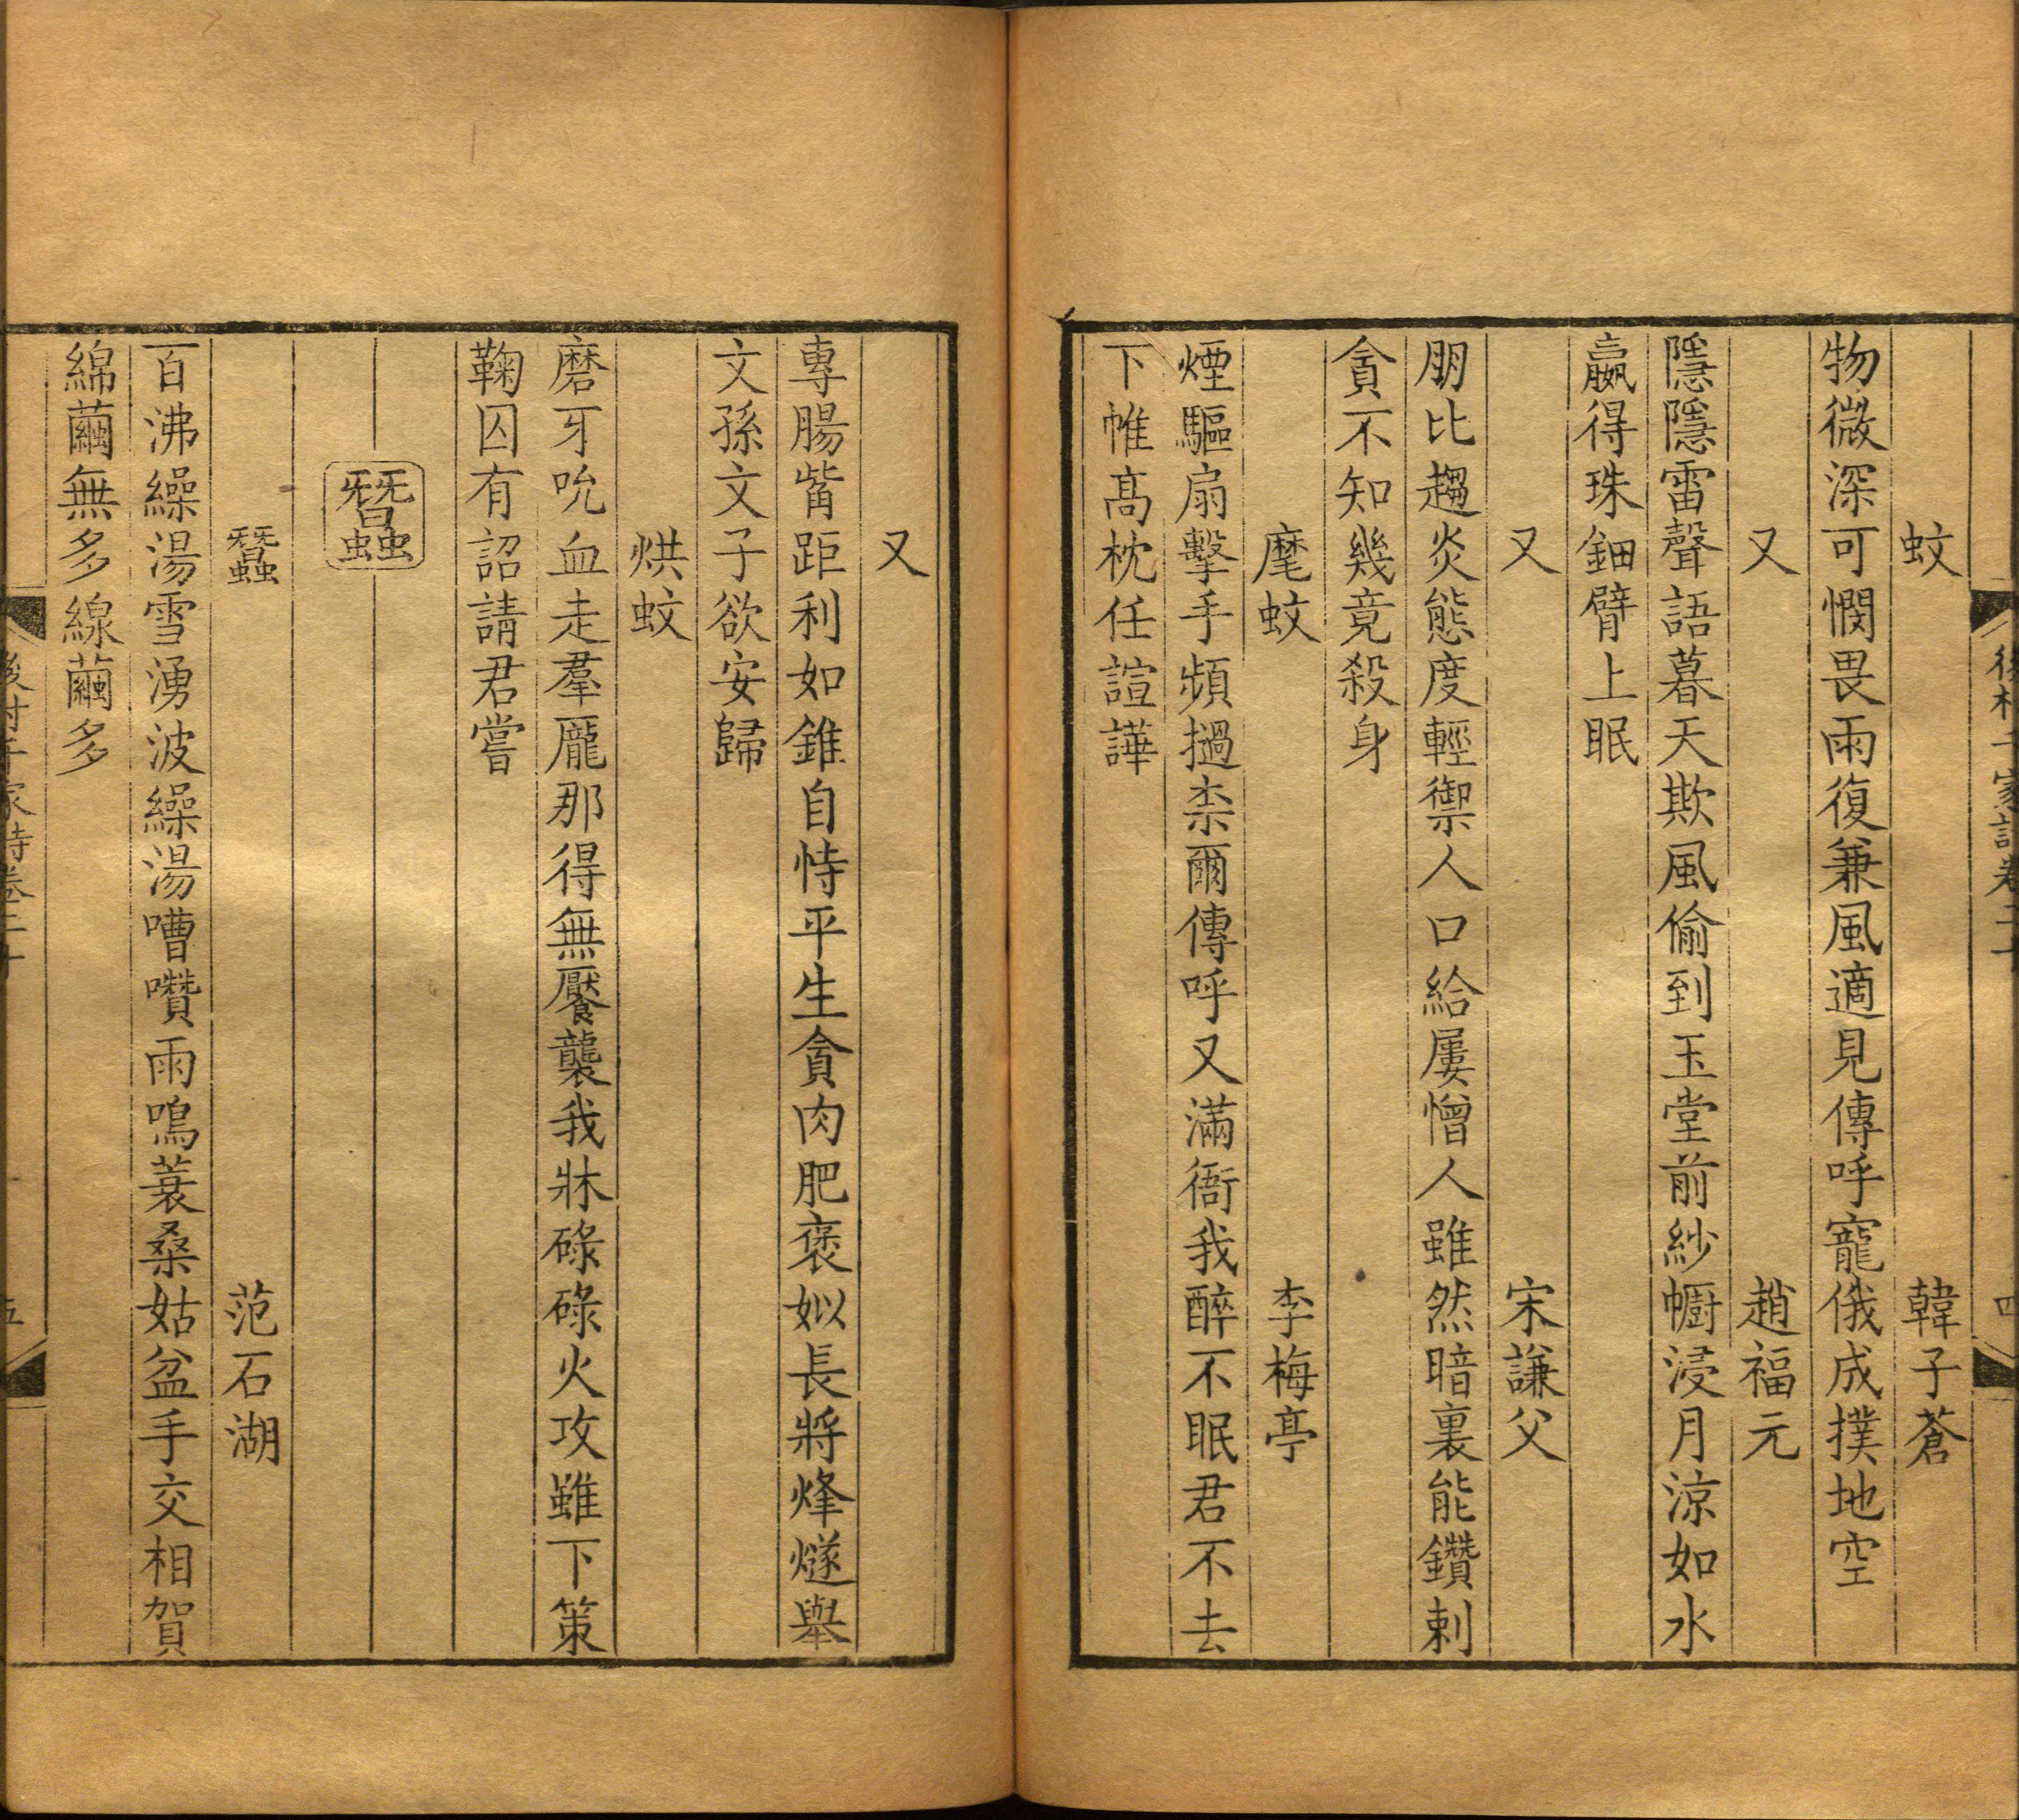 後村千家詩卷二十 四
蚊 韓子蒼
物微深可憫畏雨復兼風適見傳呼寵俄成撲地空
又 趙福元
隱隱雷聲語暮天欺風偷到玉堂前紗幮浸月涼如水
嬴得珠鈿臂上眠
又 宋謙父
朋比趨炎態度輕禦人口給屢憎人雖然暗裏能鑽刺
貪不知幾竟殺身
麾蚊 李梅亭
煙驅扇擊手頻撾柰爾傳呼又滿衙我醉不眠君不去
下帷高枕任諠譁
又
專腸觜距利如錐自恃平生貪肉肥褒姒長將烽燧舉
文孫文子欲安歸
烘蚊
磨牙吮血走羣厖那得無饜襲我牀碌碌火攻雖下策
鞠囚有詔請君嘗
蠶
蠶 范石湖
百沸繰湯雪湧波繰湯嘈囋雨鳴蓑桑姑盆手交相賀
綿繭無多線繭多
後村千家詩卷二十 五